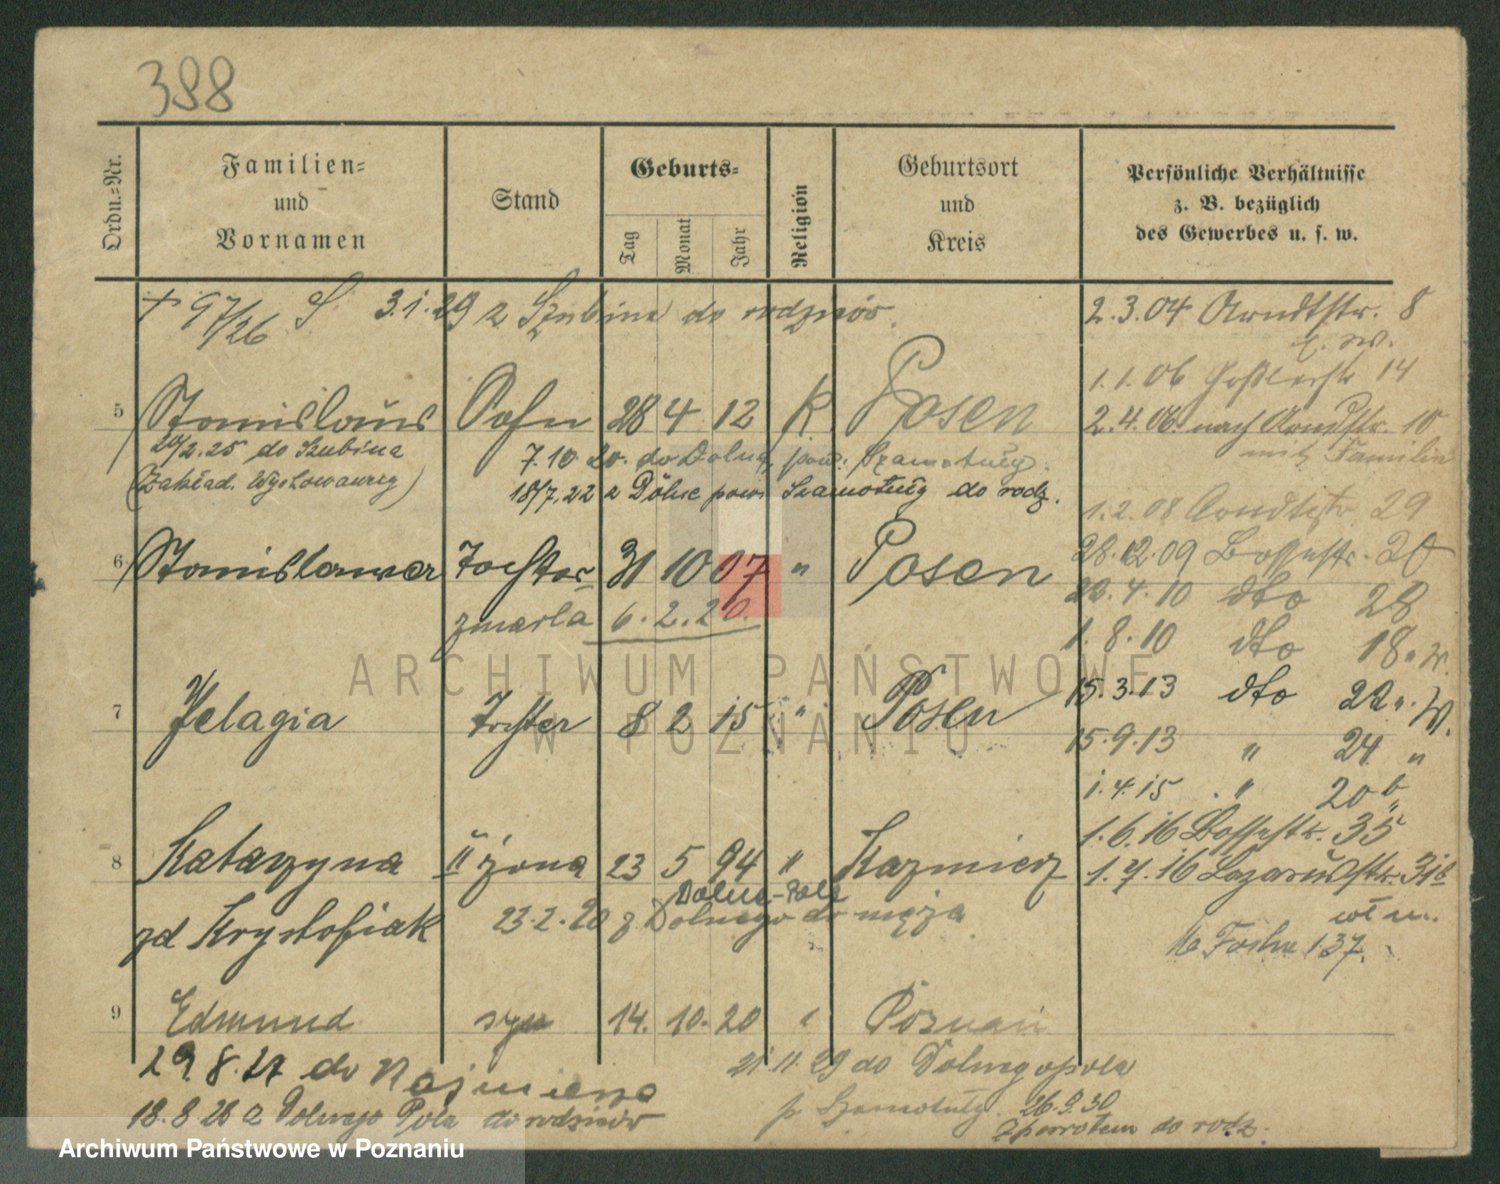 388
Ordn.=Nr.
Familien=
und
Vornamen
Stand
Geburts=
Tag
Monat
Jahr
Religion
Geburtsort
und
Kreis
Persönliche Verhältnisse
z. B. bezüglich
des Gewerbes u. s. w.
+ 97/26 S 3.1.29 z Szubina do rodziców.
2.3.04 Arndtstr. 8
1.1.06 Goßlerstr 14
5 Stanislaus Sohn 28 4 12 K. Posen
2.4.06. nach Arndtstr. 10
mit Familie
20/2.25 do Szubina
7.10.20. do Dolna, pow. Szamotuły.
(Zakład. Wychowawczy)
18/7.22 z Dolne pow. Szamotuły do rodz.
1.2.08 Arndtstr 29
28.12.09 Bossestr. 20
6 Stanislawa Tochter 31 10 07 " Posen
22.4.10 dto 28
zmarła 6.2.20.
1.8.10 dto 18 " W.
15.3.13 dto 22 " W.
7 Pelagia Tochter 8 2 15 " Posen
15.9.13 " 24 "
1.4.15 " 20 b
1.6.16 Bossestr. 35
8 Katarzyna II żona 23 5 94 " Kazmierz
1.7.16 Lazarusstr. 31b
Dolne-Pole
zd Krysztofiak 23.2.20 z Dolnego do męża
Focha 137.
9 Edmund syn 14. 10. 20 " Poznań
29.8.27 do Kaźmierza
21.11.29 do Dolnegopola
18.8.28 z Dolnego Pola do rodziców
p. Szamotuły. 26.9.30
zpowrotem do rodz.
ARCHIWUM PAŃSTWOWE
W POZNANIU
Archiwum Państwowe w Poznaniu